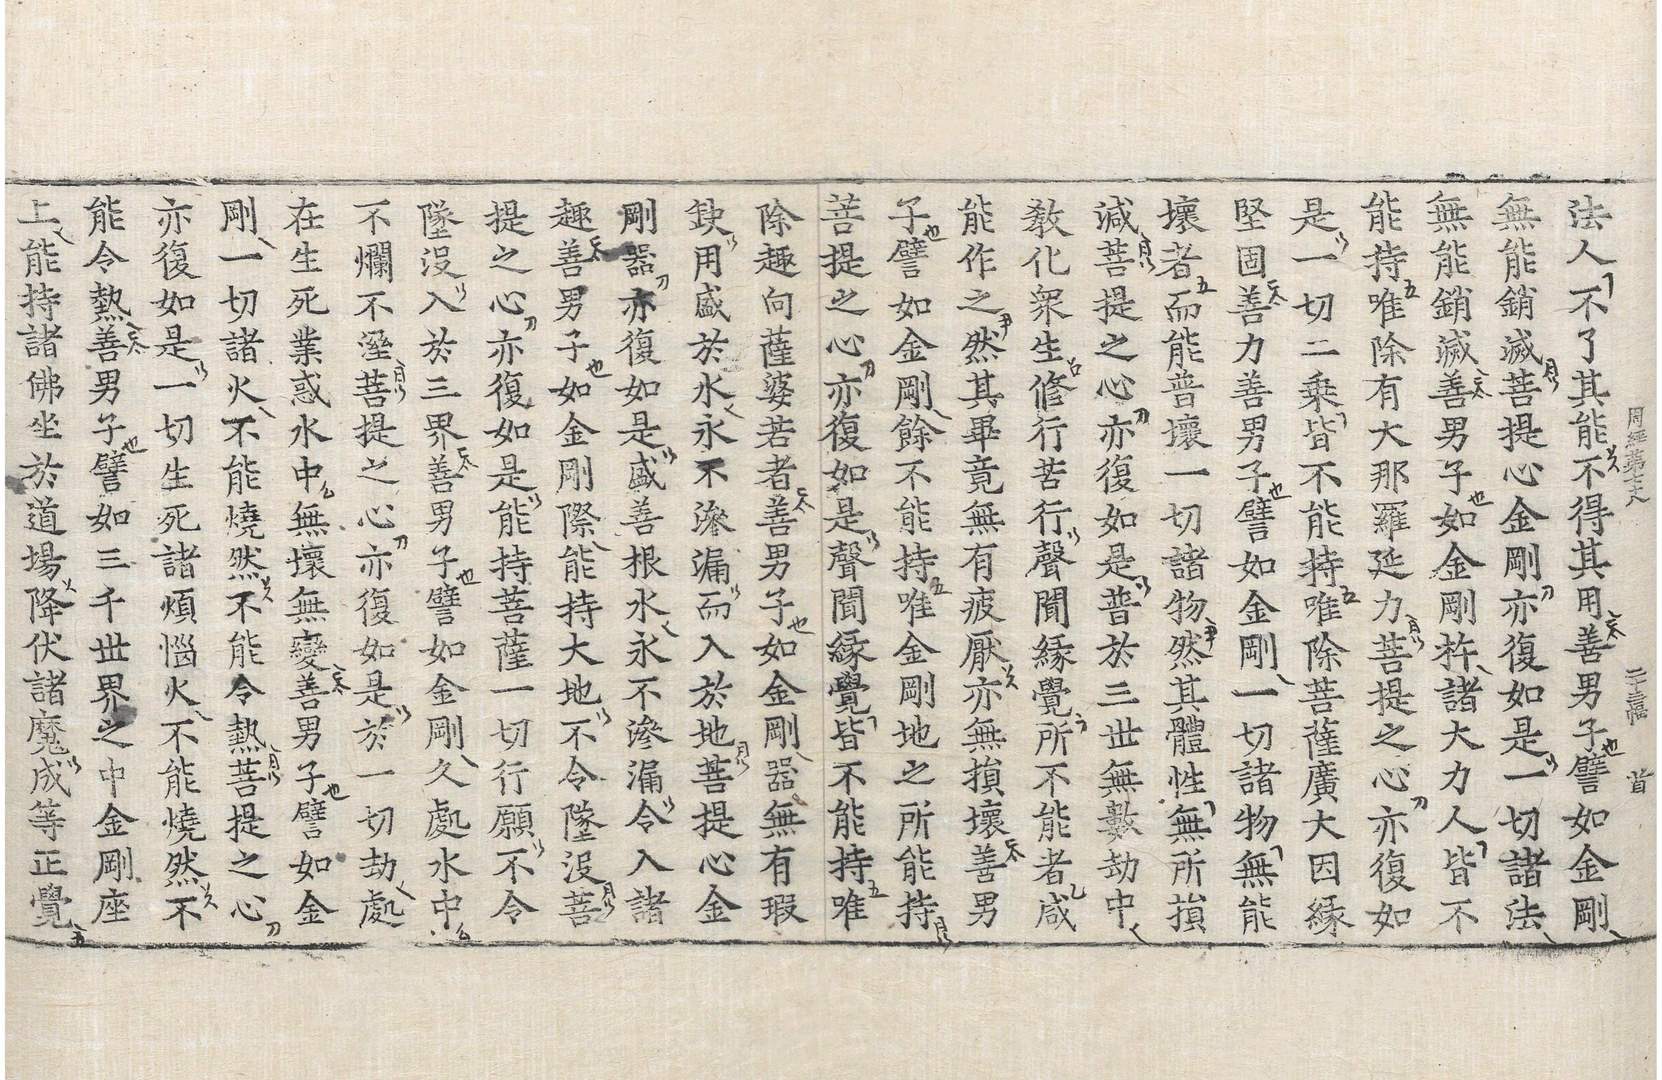 法人不了其能不得其用善男子譬如金剛
無能銷滅菩提心金剛亦復如是一切諸法
無能銷滅善男子如金剛杵諸大力人皆不
能持唯除有大那羅延力菩提之心亦復如
是一切二乘皆不能持唯除菩薩廣大因緣
堅固善力善男子譬如金剛一切諸物無能
壞者而能普壞一切諸物然其體性無所損
減菩提之心亦復如是普於三世無數劫中
教化衆生修行苦行聲聞緣覺所不能者咸
能作之然其畢竟無有疲厭亦無損壞善男
子譬如金剛餘不能持唯金剛地之所能持
菩提之心亦復如是聲聞緣覺皆不能持唯
除趣向薩婆若者善男子如金剛器無有瑕
缺用盛於水永不滲漏而入於地菩提心金
剛器亦復如是盛善根水永不滲漏令入諸
趣善男子如金剛際能持大地不令墜沒菩
提之心亦復如是能持菩薩一切行願不令
墜沒入於三界善男子譬如金剛久處水中
不爛不溼菩提之心亦復如是於一切劫處
在生死業惑水中無壞無變善男子譬如金
剛一切諸火不能燒然不能令熱菩提之心
亦復如是一切生死諸煩惱火不能燒然不
能令熱善男子譬如三千世界之中金剛座
上能持諸佛坐於道場降伏諸魔成等正覺